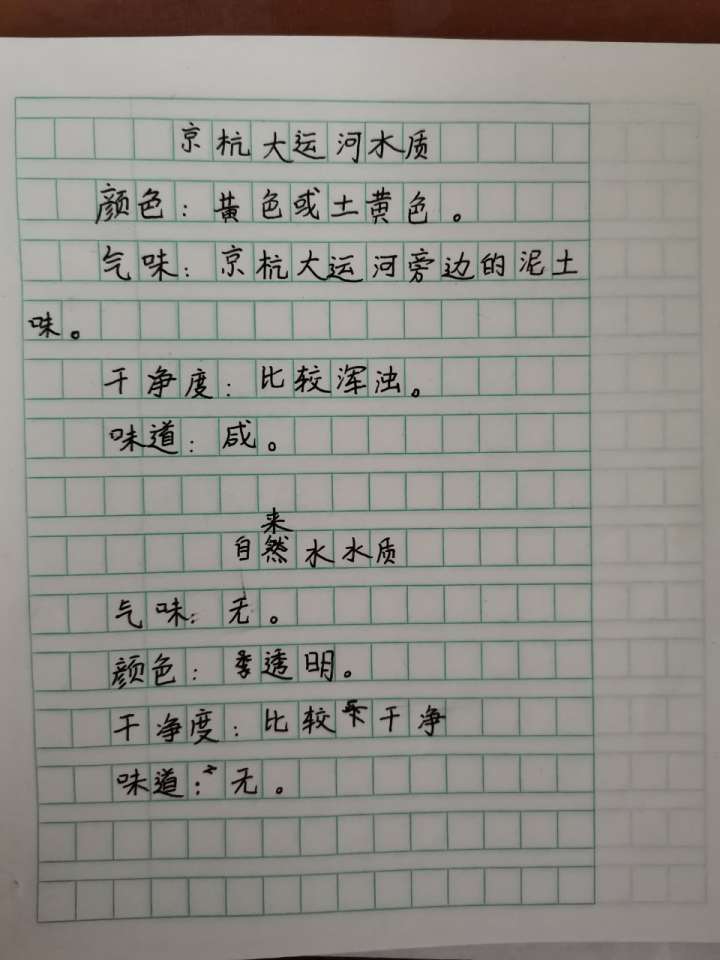 京杭大运河水质
颜色：黄色或土黄色。
气味：京杭大运河旁边的泥土
味。
干净度：比较浑浊。
味道：咸。
来
自然水水质
气味：无。
颜色：透明。
干净度：比较干净
味道：无。